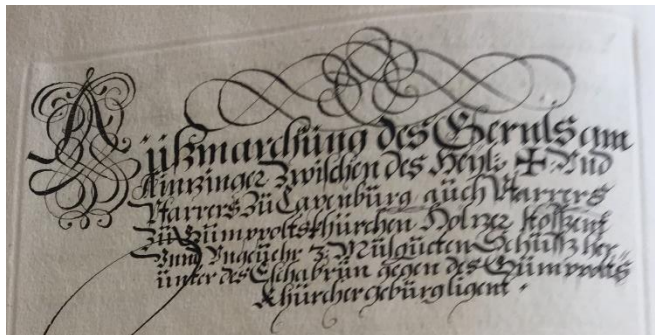 Außmarchung des Gereuls am
Kinzinger zwischen des Heyl: + Und
Pfarrers zu Laxenburg auch Pfarrers
zu Gumpoltskhürchen Holzer stossent
Unnd Ungeuehr 3: Musqueten Schuss her=
unter des Eschabrun gegen des Gumpolts
Khürcher gebürg ligent .